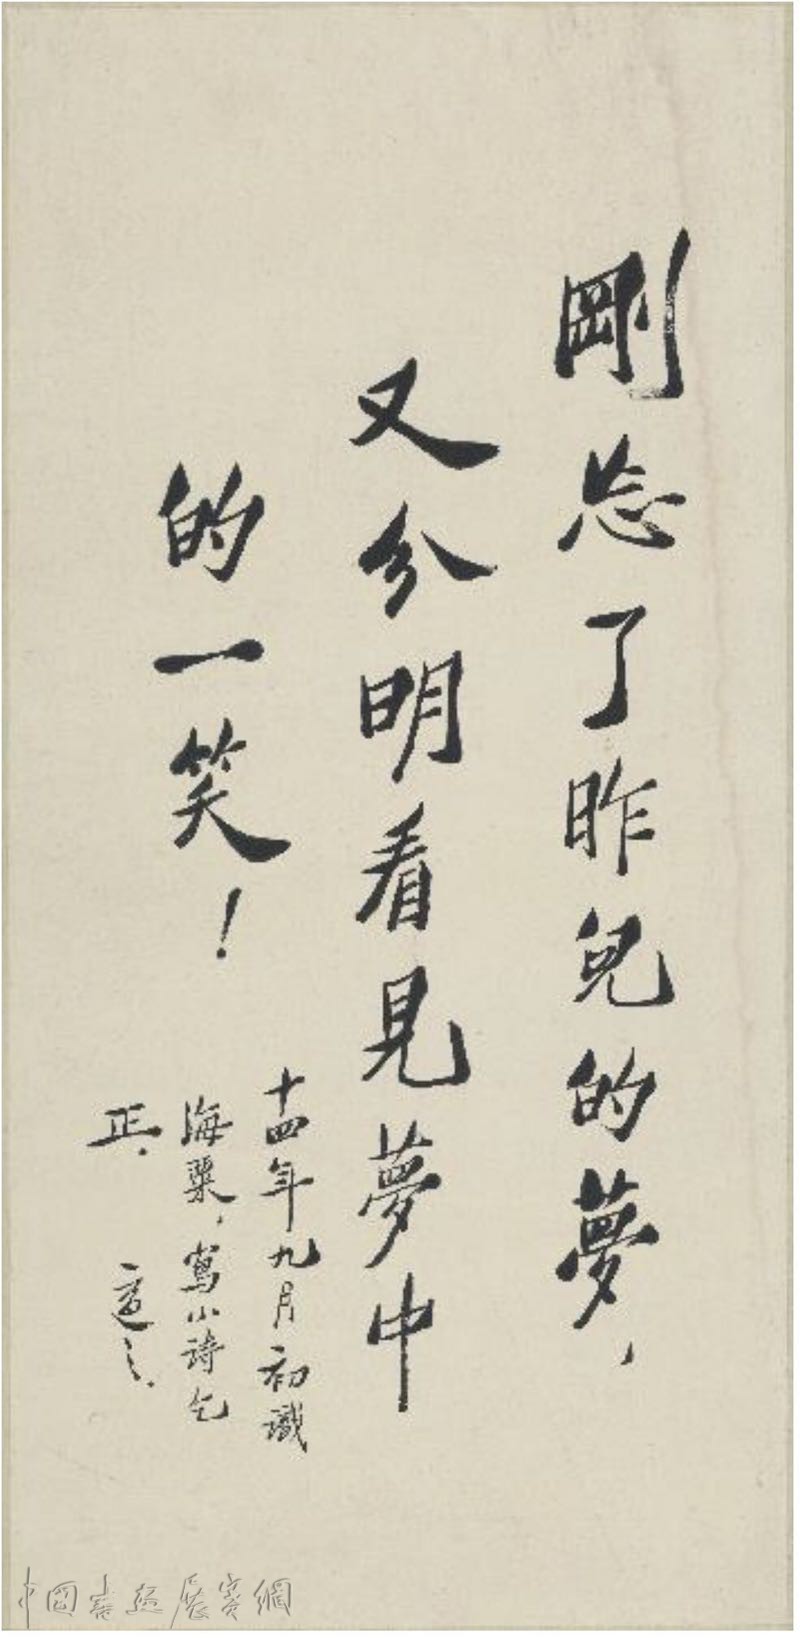 剛忘了昨兒的夢，
又分明看見夢中
的一笑！
十四年九月初識
海粟，寫小詩乞
正．
適之．
中国書画展賽網